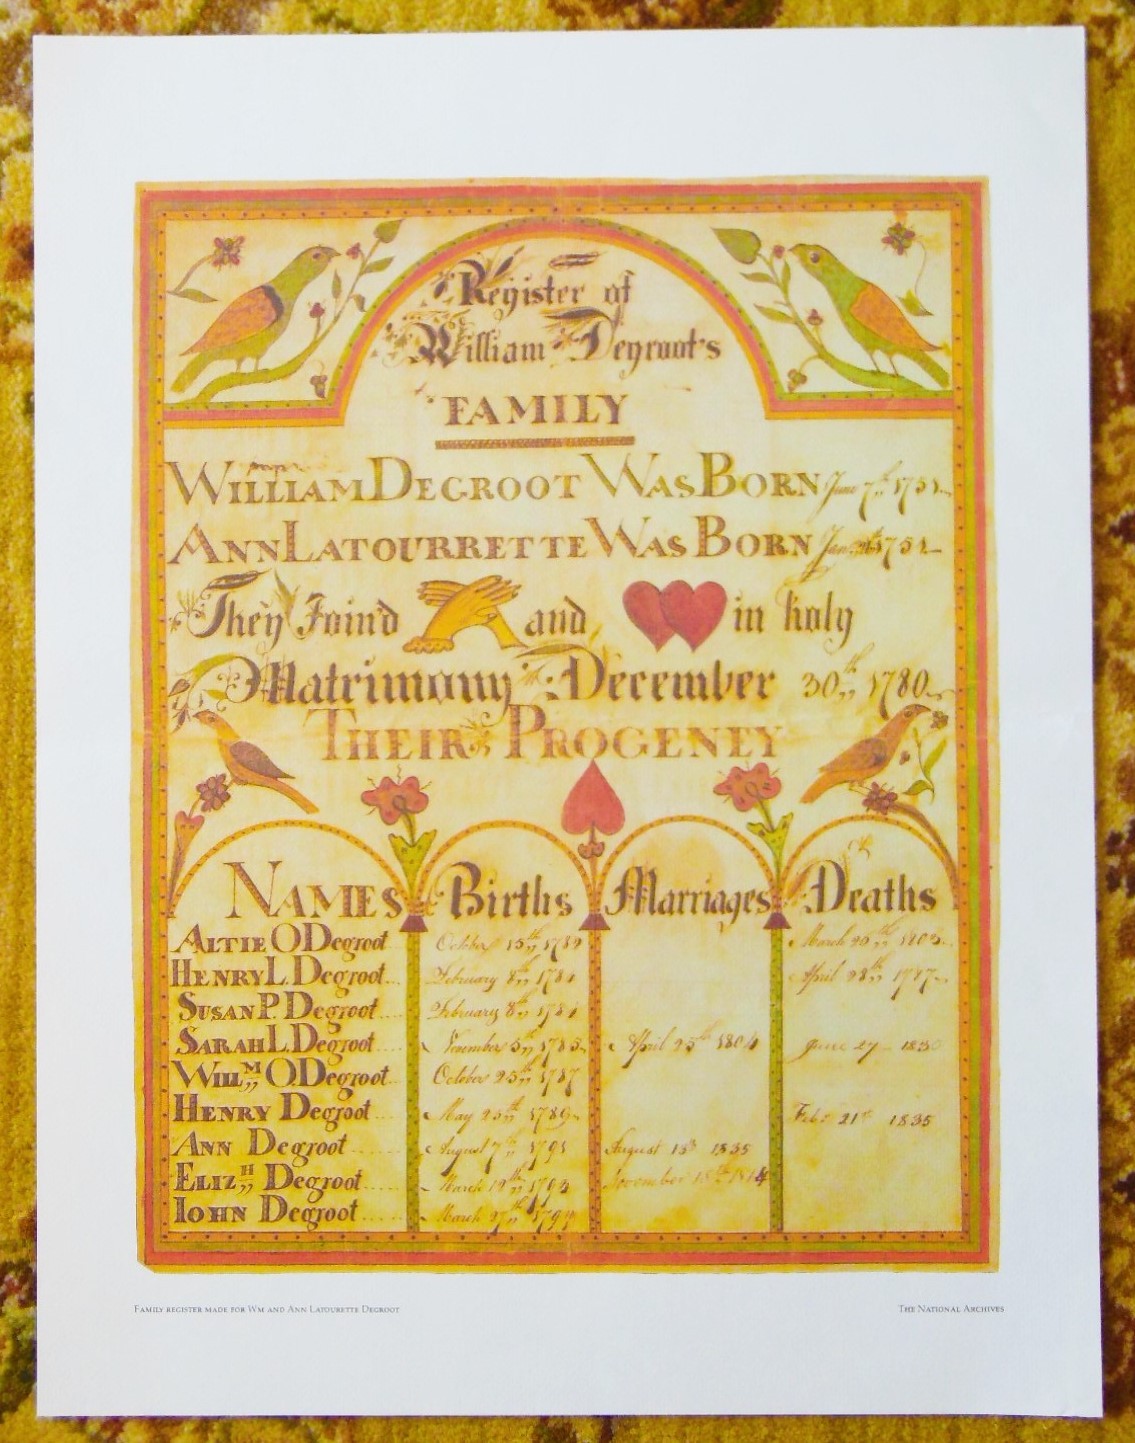 Register of
William Degroot's
FAMILY
WILLIAM DEGROOT WAS BORN June 7th 1751
ANN LATOURRETTE WAS BORN Jan 1751
They Join'd and in holy
Matrimony December 30th 1780
THEIR PROGENEY
NAMES Births Marriages Deaths
ALTIE O Degroot October 15th 1782 March 20th 1803
HENRY L. Degroot February 8th 1784 April 28th 1787
SUSAN P. Degroot February 8th 1784
SARAH L. Degroot November 5th 1785 April 25th 1804 June 27 1830
WILLM O. Degroot October 25th 1787
HENRY Degroot May 25th 1789 Feb. 21st 1835
ANN Degroot August 7th 1791 August 1835
ELIZH Degroot March 1793 November 18th 1814
IOHN Degroot March 27th
FAMILY REGISTER MADE FOR WM AND ANN LATOURETTE DEGROOT
THE NATIONAL ARCHIVES